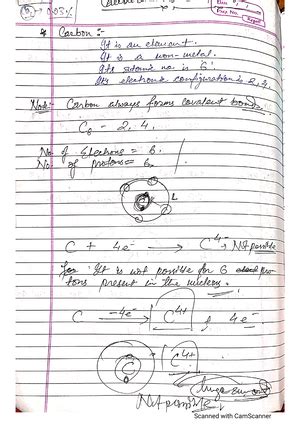 * Carbon :-
It is an element.
It is a non-metal.
Its atomic no. is 6.
Its electronic configuration is 2, 4.
Note:- Carbon always forms covalent bonds.
C6 - 2, 4.
No. of Electrons = 6.
No. of protons = 6.
L
C + 4e- → C4- Not possible
It is not possible for 6 protons present in the nucleus.
C -4e- → C4+ , 4e-
C4+
Not possible
Scanned with CamScanner